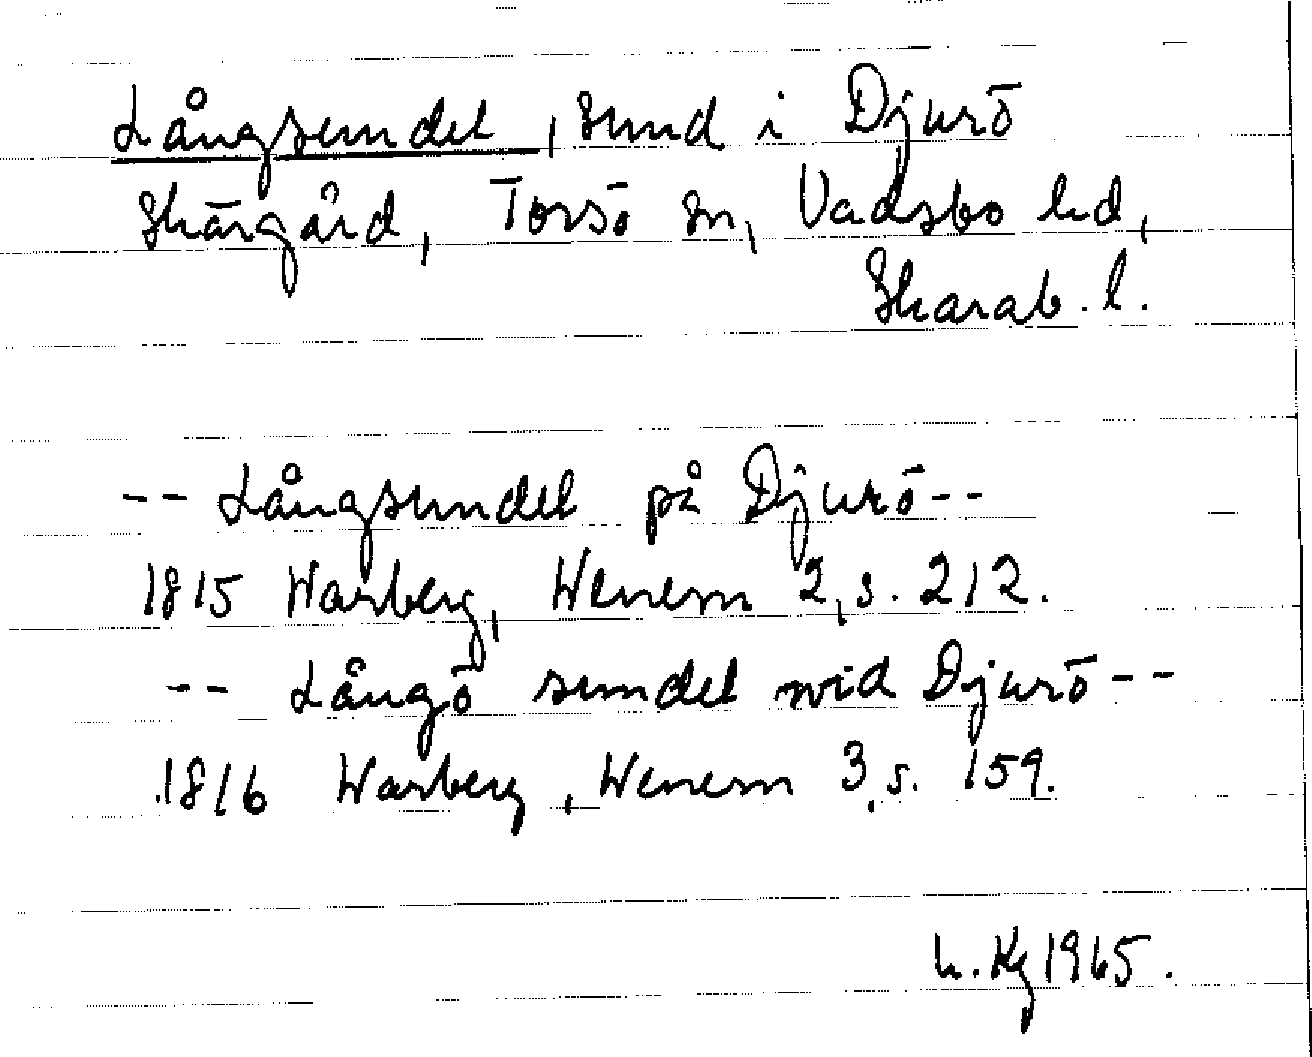 Långsundet, sund i Djurö
skärgård, Torsö sn, Vadsbo hd,
Skarab. l.
-- Långsundet på Djurö --
1815 Warberg, Wenern 2, s. 212.
-- Långö sundet wid Djurö --
1816 Warberg, Wenern 3, s. 159.
1965.